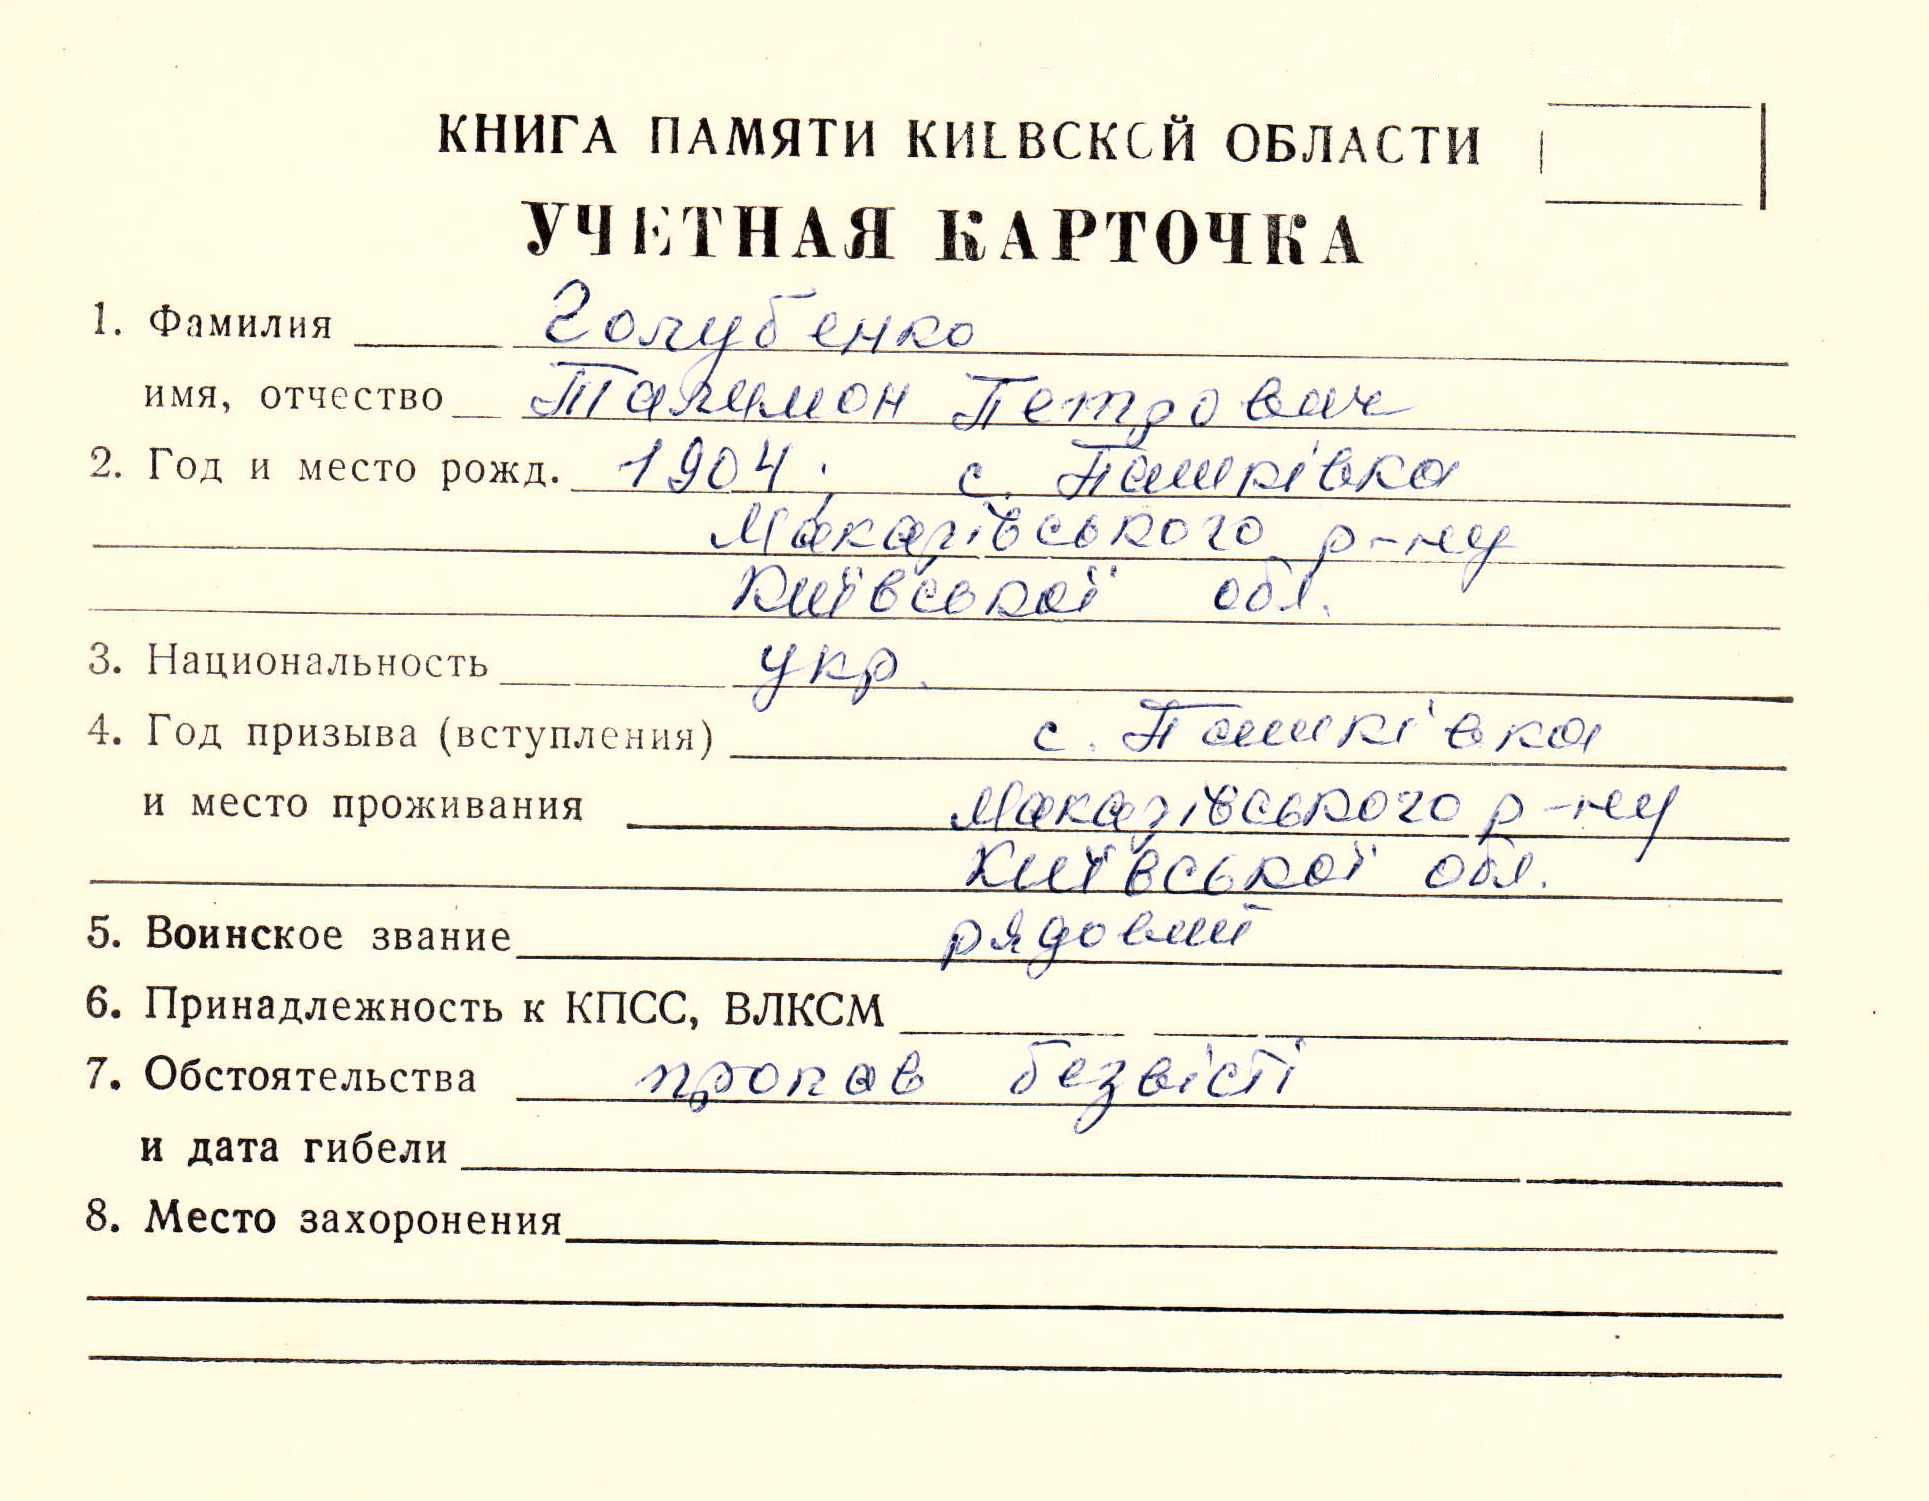 КНИГА ПАМЯТИ КИЕВСКОЙ ОБЛАСТИ
УЧЕТНАЯ КАРТОЧКА
1. Фамилия Голубенко
имя, отчество Талимон Петрович
2. Год и место рожд. 1904, с. Пашківка
Макарівського р-ну
Київської обл.
3. Национальность укр.
4. Год призыва (вступления) с. Пашківка
и место проживания Макарівського р-ну
Київської обл.
5. Воинское звание рядовий
6. Принадлежность к КПСС, ВЛКСМ
7. Обстоятельства пропав безвісті
и дата гибели
8. Место захоронения